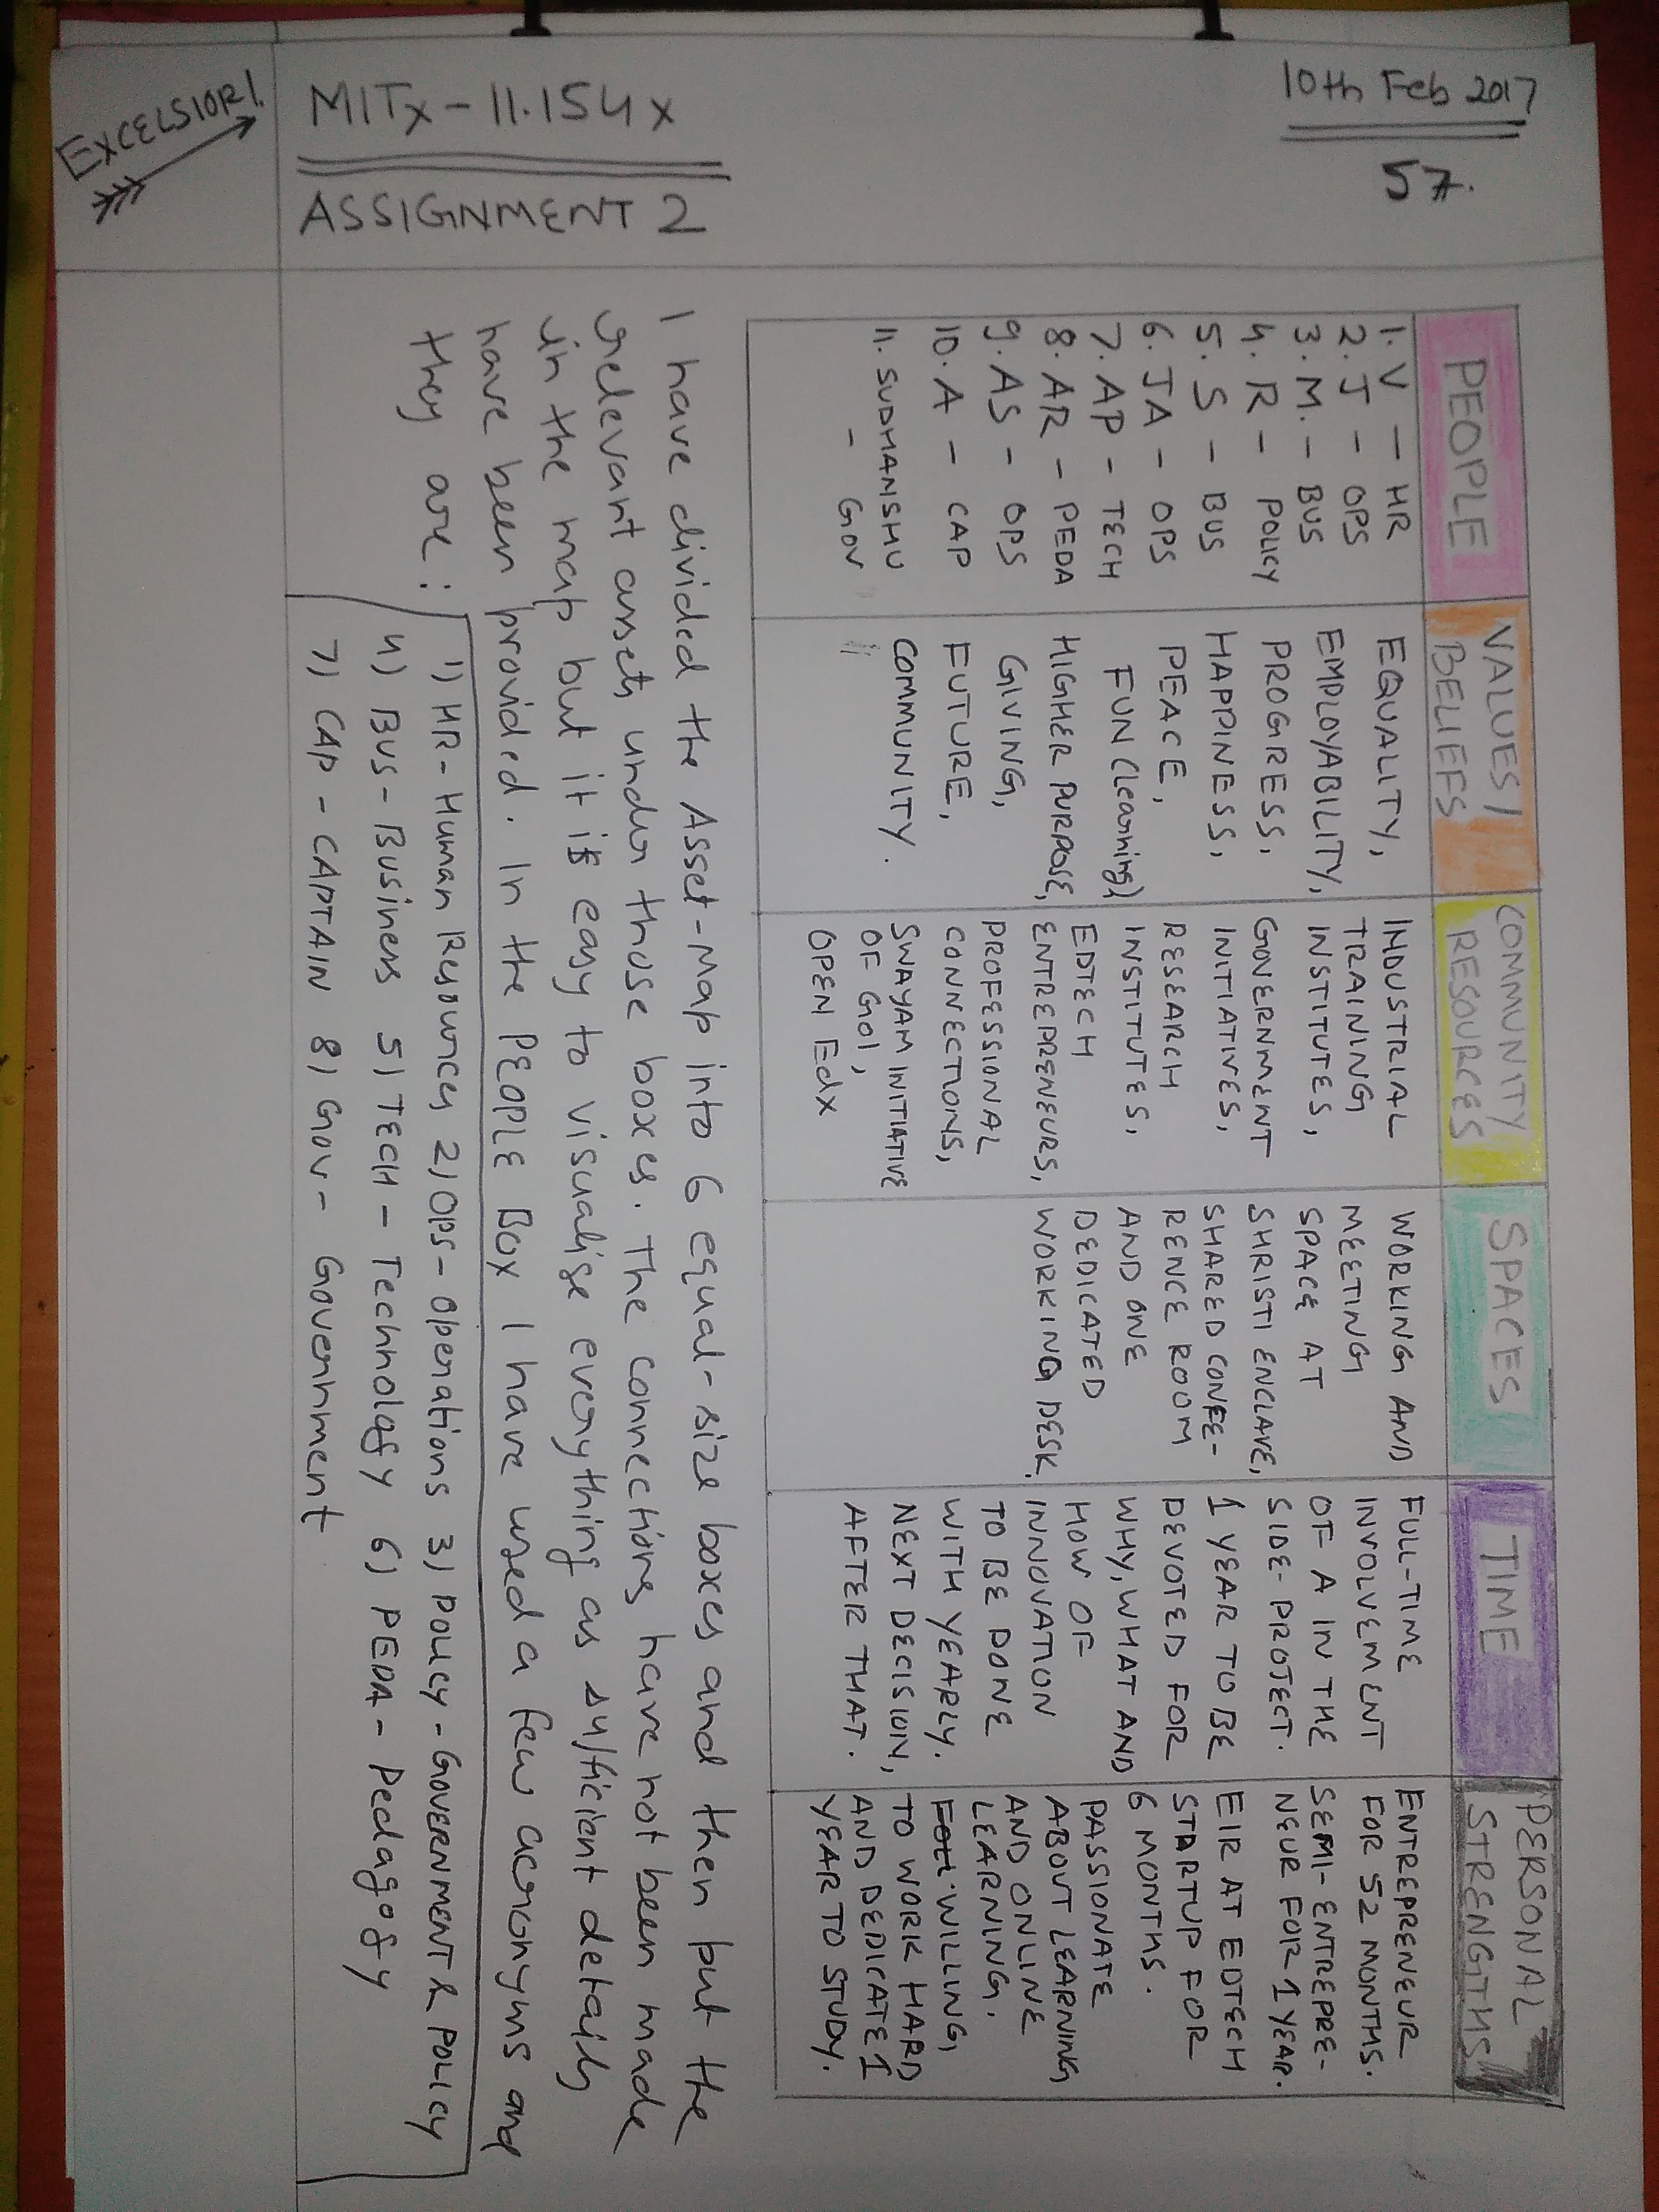 10th Feb 2017
57.
MITx - 11.154x
ASSIGNMENT 2
EXCELSIOR!
PEOPLE
1. V - HR
2. J - OPS
3. M. - BUS
4. R - POLICY
5. S - BUS
6. JA - OPS
7. AP - TECH
8. AR - PEDA
9. AS - OPS
10. A - CAP
11. SUDHANSHU
- GOV
VALUES/
BELIEFS
EQUALITY,
EMPLOYABILITY,
PROGRESS,
HAPPINESS,
PEACE,
FUN (learning),
HIGHER PURPOSE,
GIVING,
FUTURE,
COMMUNITY.
COMMUNITY
RESOURCES
INDUSTRIAL
TRAINING
INSTITUTES,
GOVERNMENT
INITIATIVES,
RESEARCH
INSTITUTES,
EDTECH
ENTREPRENEURS,
PROFESSIONAL
CONNECTIONS,
SWAYAM INITIATIVE
OF GOI,
OPEN Edx
SPACES
WORKING AND
MEETING
SPACE AT
SHRISTI ENCLAVE,
SHARED CONFE-
RENCE ROOM
AND ONE
DEDICATED
WORKING DESK.
TIME
FULL-TIME
INVOLVEMENT
OF A IN THE
SIDE-PROJECT.
1 YEAR TO BE
DEVOTED FOR
WHY, WHAT AND
HOW OF
INNOVATION
TO BE DONE
WITH YEARLY.
NEXT DECISION,
AFTER THAT.
PERSONAL
STRENGTHS
ENTREPRENEUR
FOR 52 MONTHS.
SEMI-ENTREPRE-
NEUR FOR 1 YEAR.
EIR AT EDTECH
STARTUP FOR
6 MONTHS.
PASSIONATE
ABOUT LEARNING
AND ONLINE
LEARNING.
WILLING,
TO WORK HARD
AND DEDICATE 1
YEAR TO STUDY.
I have divided the Asset-Map into 6 equal-size boxes and then but the
relevant assets under those boxes. The connections have not been made
in the map but it is easy to visualise everything as sufficient details
have been provided. In the PEOPLE BOX I have used a few acronyms and
they are:
1) HR - Human Resources 2) OPS - Operations 3) POLICY - GOVERNMENT & POLICY
4) BUS - Business 5) TECH - Technology 6) PEDA - Pedagogy
7) CAP - CAPTAIN 8) Gov - Government